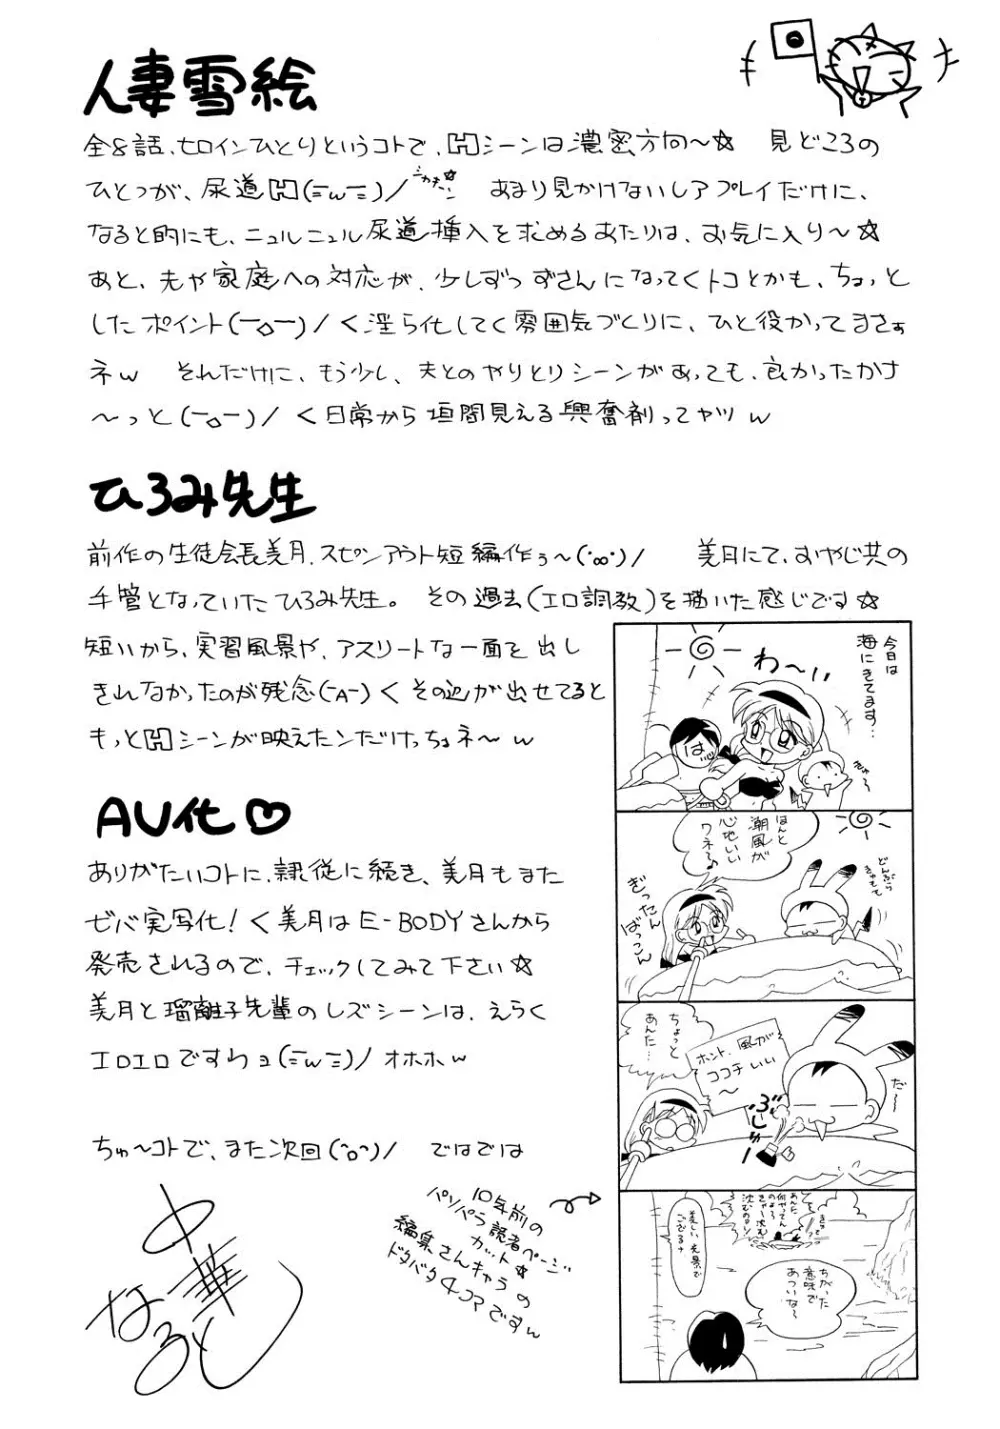 人妻雪絵
全8話、ヒロインひとりというコトで、Hシーンは濃密方向～☆ 見どころの
ひとつが、尿道H(=w=)/ あまり見かけないレアプレイだけに、
なると的にも、ニュルニュル尿道挿入を求めるあたりは、お気に入り～☆
あと、夫や家庭への対応が、少しずつずさんになってくトコとかも、ちょっと
したポイント(ー。ー)/く淫ら化してく雰囲気づくりに、ひと役かってまさぁ
ネw それだけに、もう少し、夫とのやりとりシーンがあっても、良かったかナ
～っと(ー。ー)/く日常から垣間見える興奮剤ってヤツw
ひろみ先生
前作の生徒会長美月、スピンアウト短編作ぅ～(・∞・)/ 美月にて、おやじ共の
手管となっていたひろみ先生。その過去(エロ調教)を描いた感じです☆
短いから、実習風景や、アスリートな一面を出し
きれなかったのが残念(ーAー)くその辺が出せてると
もっとHシーンが映えたンだけっちょネ～w
AV化♡
ありがたいコトに、隷従に続き、美月もまた
ゼバ実写化!く美月はE-BODYさんから
発売されるので、チェックしてみて下さい☆
美月と瑠離子先輩のレズシーンは、えらく
エロエロですわョ(=w=)/オホホw
ちゅ～コトで、また次回(^o^)/ ではでは
中華なると
10年前の
パソパラ読者ページ
カット☆
編集さんキャラの
ドタバタ4コマですw
今日は
海にきてます…
わ～い
はい
きゃ～
ほんと
潮風が
心地いい
ワネ♪
ぎったん
ばっこん
どんぶら
ちょっと
あんた…
ホント、風が
ココチいい
～
だ～
ぶしゅー
美しい光景で
ござるナ
あんた
何やってん
のよ～
きゃ～沈む
沈むのョ!
ちがった
意味で
あついな～